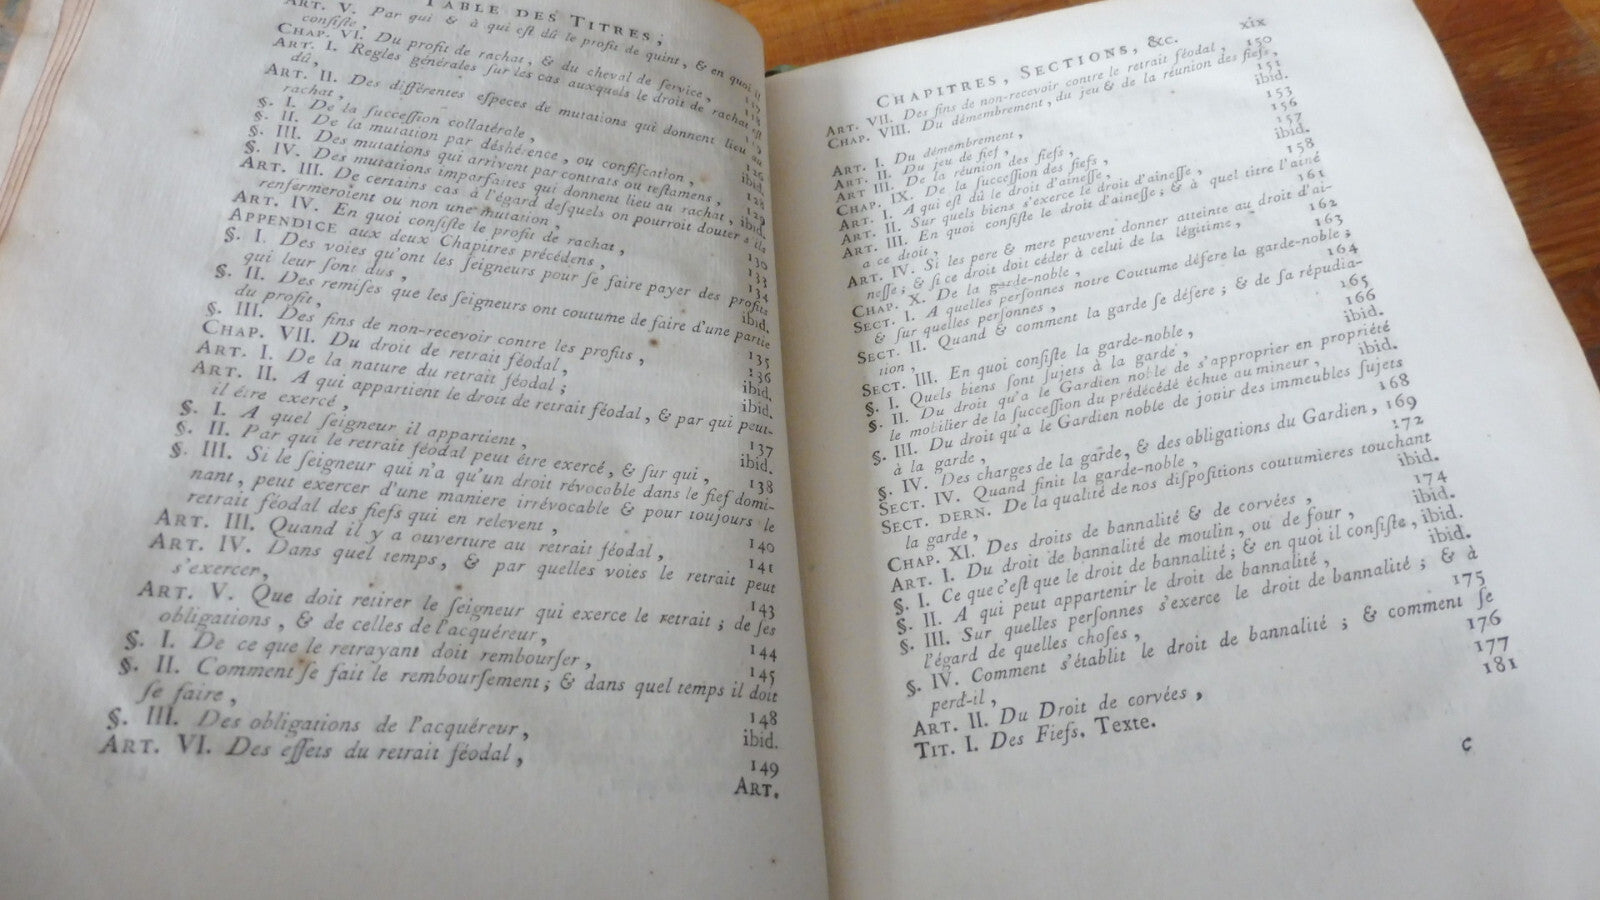 TABLE DES TITRES;
ART. V. Par qui & à qui eſt dû le profit de quint, & en quoi il
conſiſte,
CHAP. VI. Du profit de rachat, & du cheval de ſervice,
ART. I. Regles générales ſur les cas auxquels le droit de rachat eſt
dû,
ART. II. Des différentes eſpeces de mutations qui donnent lieu au
rachat,
§. I. De la ſucceſſion collatérale, 126
§. II. De la mutation par déshérence, ou confiſcation, ibid.
§. III. Des mutations qui arrivent par contrats ou teſtamens, 128
§. IV. Des mutations imparfaites qui donnent lieu au rachat, 129
ART. III. De certains cas à l'égard deſquels on pourroit douter s'ils
renfermeroient ou non une mutation, ibid.
ART. IV. En quoi conſiſte le profit de rachat, 130
APPENDICE aux deux Chapitres précédens, 133
§. I. Des voies qu'ont les ſeigneurs pour ſe faire payer des profits
qui leur ſont dus, 134
§. II. Des remiſes que les ſeigneurs ont coutume de faire d'une partie
du profit, ibid.
§. III. Des fins de non-recevoir contre les profits, 135
CHAP. VII. Du droit de retrait féodal, 136
ART. I. De la nature du retrait féodal; ibid.
ART. II. A qui appartient le droit de retrait féodal, & par qui peut-
il être exercé, ibid.
§. I. A quel ſeigneur il appartient, 137
§. II. Par qui le retrait féodal peut être exercé, & ſur qui, ibid.
§. III. Si le ſeigneur qui n'a qu'un droit révocable dans le fief domi- 138
nant, peut exercer d'une maniere irrévocable & pour toujours le
retrait féodal des fiefs qui en relevent, 140
ART. III. Quand il y a ouverture au retrait féodal, 141
ART. IV. Dans quel temps, & par quelles voies le retrait peut
s'exercer, 143
ART. V. Que doit retirer le ſeigneur qui exerce le retrait; de ſes
obligations, & de celles de l'acquéreur, 144
§. I. De ce que le retrayant doit rembourſer, 145
§. II. Comment ſe fait le rembourſement; & dans quel temps il doit
ſe faire, 148
§. III. Des obligations de l'acquéreur, ibid.
ART. VI. Des effets du retrait féodal, 149
ART.
CHAPITRES, SECTIONS, &c. xix
ART. VII. Des fins de non-recevoir contre le retrait féodal, 150
CHAP. VIII. Du démembrement, du jeu & de la réunion des fiefs,
151
ART. I. Du démembrement, ibid.
ART. II. Du jeu de fief, 153
ART III. De la réunion des fiefs, 156
CHAP. IX. De la ſucceſſion des fiefs, 157
ART. I. A qui eſt dû le droit d'aineſſe, ibid.
ART. II. Sur quels biens s'exerce le droit d'aineſſe, 158
ART. III. En quoi conſiſte le droit d'aineſſe; & à quel titre l'ainé
a ce droit, 161
ART. IV. Si les pere & mere peuvent donner atteinte au droit d'ai-
neſſe; & ſi ce droit doit céder à celui de la légitime, 162
CHAP. X. De la garde-noble, 163
SECT. I. A quelles perſonnes notre Coutume défere la garde-noble;
& ſur quelles perſonnes, 164
SECT. II. Quand & comment la garde ſe défere; & de ſa répudia-
tion, 165
SECT. III. En quoi conſiſte la garde-noble, 166
§. I. Quels biens ſont ſujets à la garde, ibid.
§. II. Du droit qu'a le Gardien noble de s'approprier en propriété
le mobilier de la ſucceſſion du prédécédé échue au mineur, ibid.
§. III. Du droit qu'a le Gardien noble de jouir des immeubles ſujets
à la garde, 168
§. IV. Des charges de la garde, & des obligations du Gardien, 169
SECT. IV. Quand finit la garde-noble, 172
SECT. DERN. De la qualité de nos diſpoſitions coutumieres touchant
la garde, ibid.
CHAP. XI. Des droits de bannalité & de corvées, 174
ART. I. Du droit de bannalité de moulin, ou de four, ibid.
§. I. Ce que c'eſt que le droit de bannalité; & en quoi il conſiſte, ibid.
§. II. A qui peut appartenir le droit de bannalité, ibid.
§. III. Sur quelles perſonnes s'exerce le droit de bannalité; & à
l'égard de quelles choſes, 175
§. IV. Comment s'établit le droit de bannalité; & comment ſe
perd-il, 176
ART. II. Du Droit de corvées, 177
TIT. I. Des Fiefs. Texte. 181
c